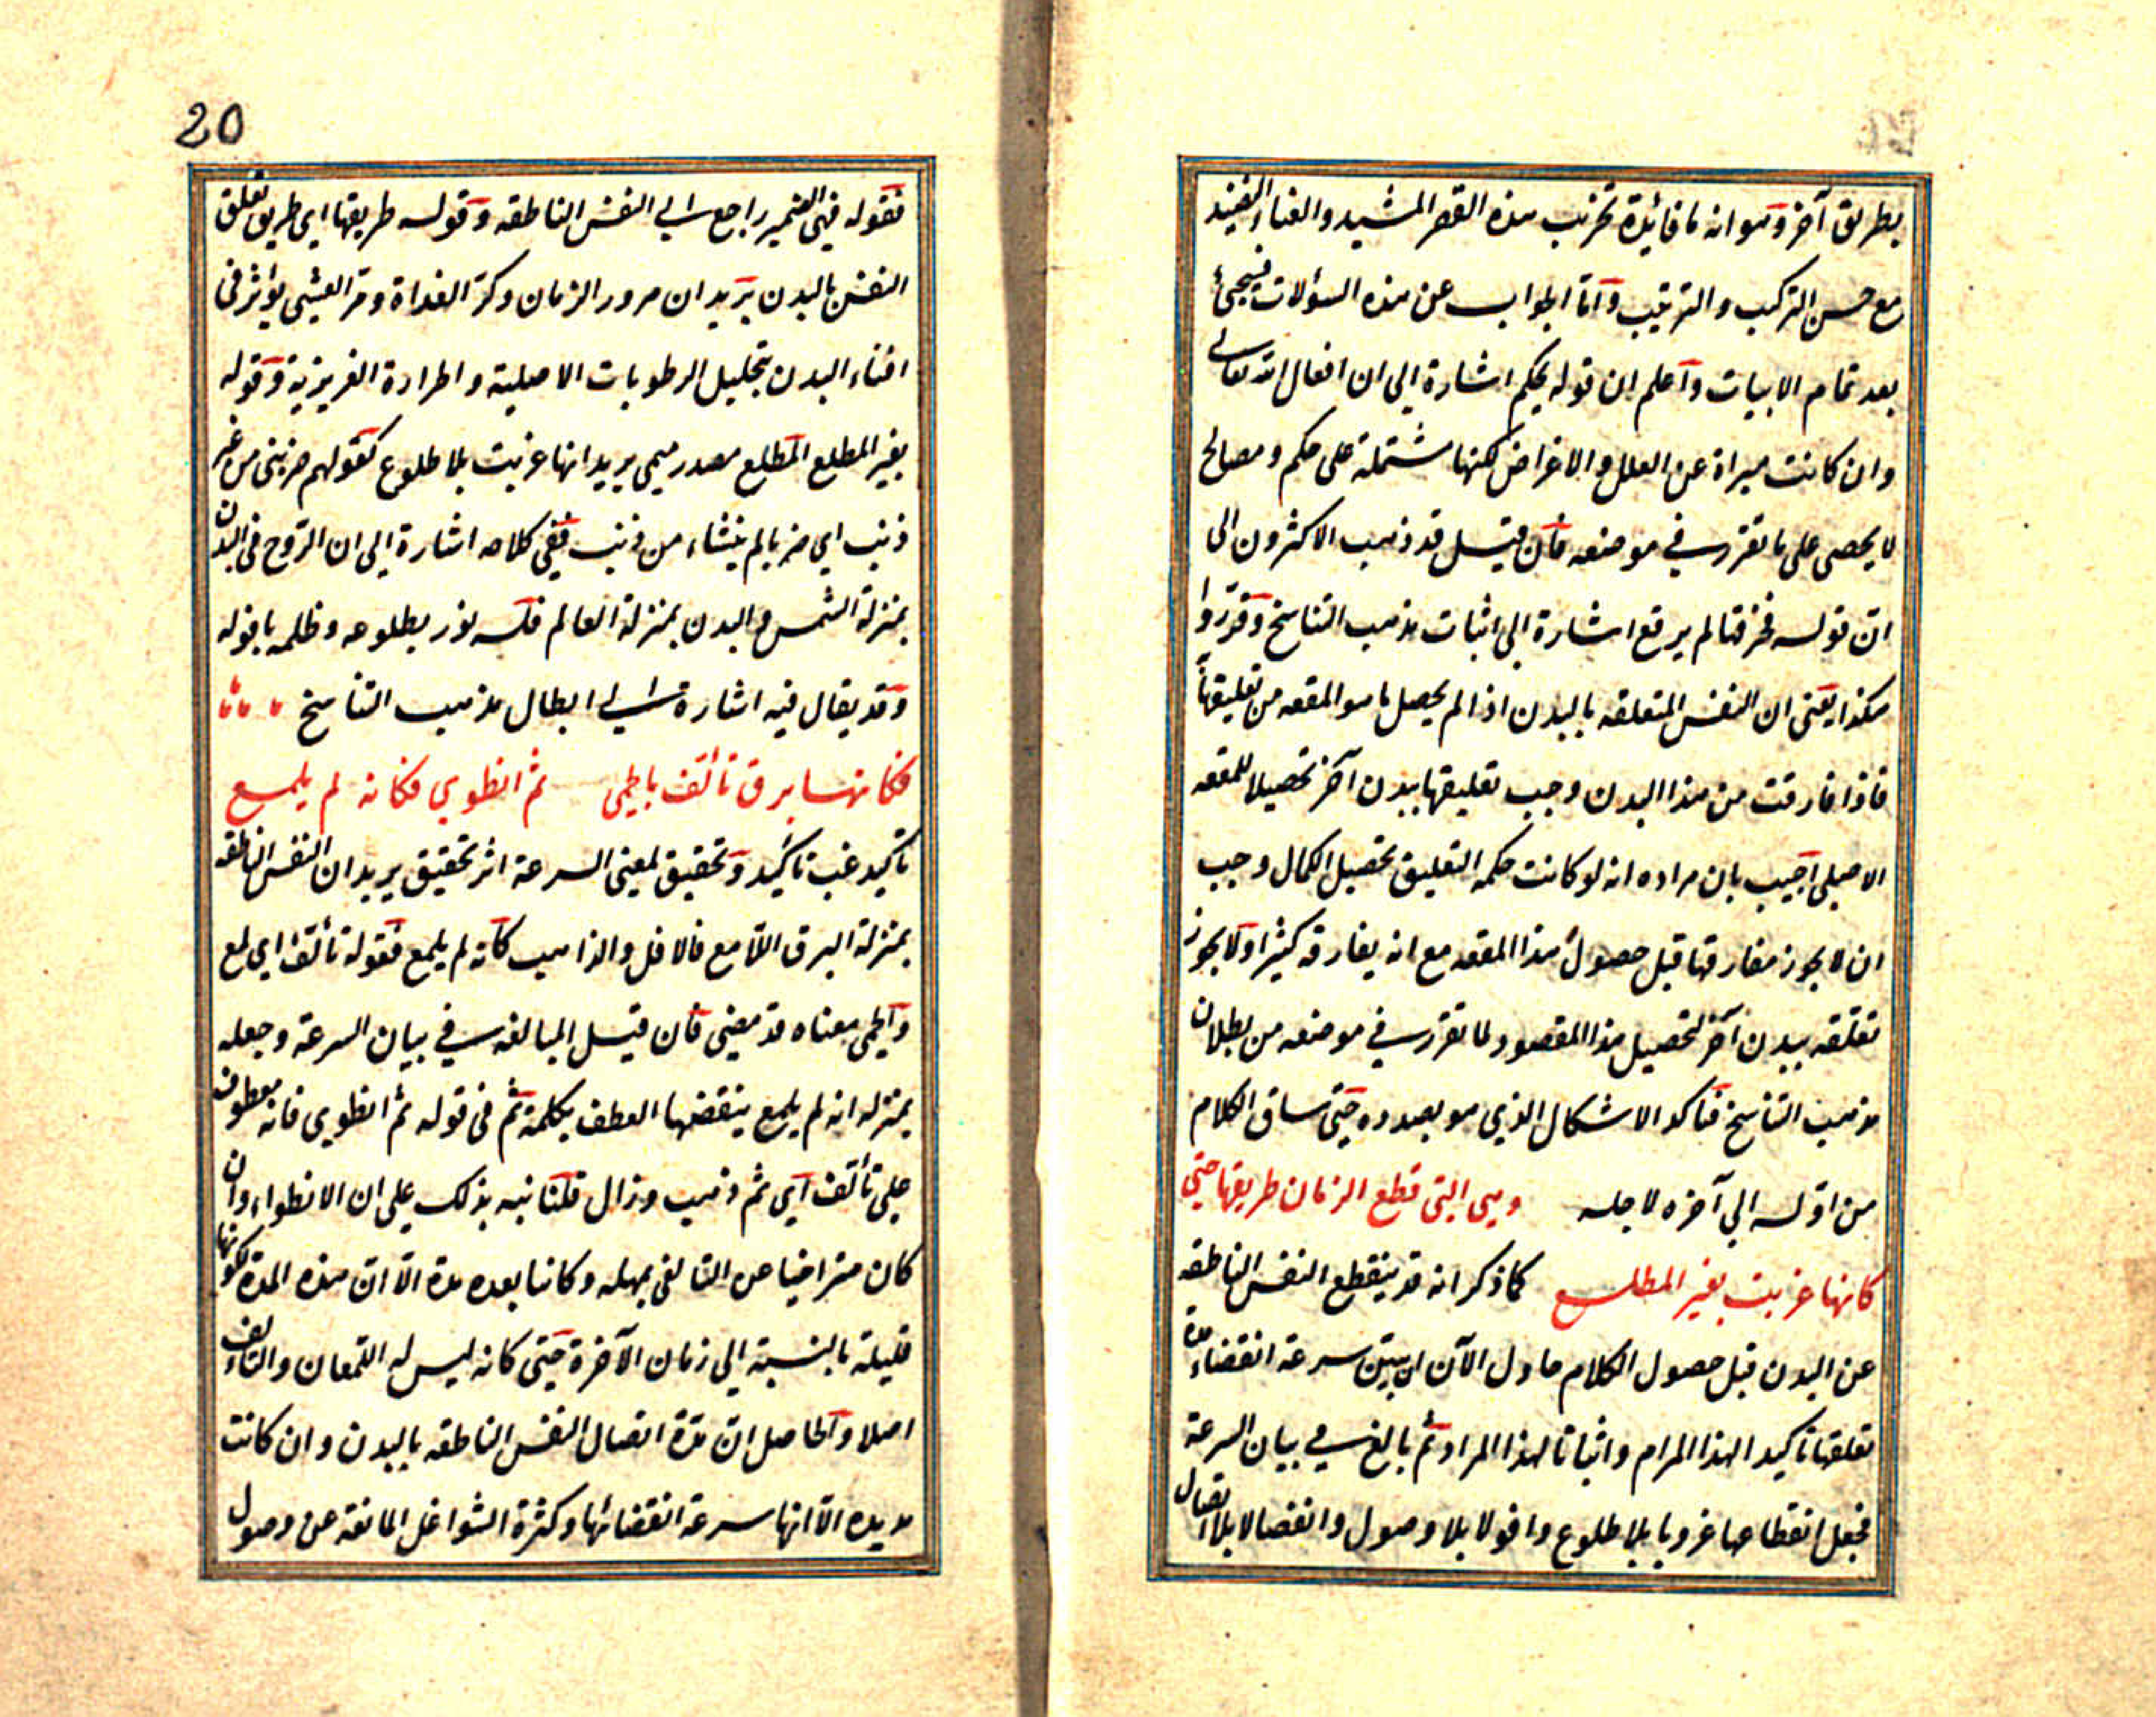 بطريق آخر وهو انه ما فائدة تخريب هذه القصر المشيد والغناء
مع حسن التركيب والترتيب وأما الجواب عن هذه السؤلات فسيجئ
بعد تمام الابيات وأعلم ان قوله بحكم اشارة الى ان افعال الله تعالى
وان كانت مبراة عن العلل والاغراض لكنها مشتملة على حكم ومصالح
لا يحصى على ما تقرر في موضعه فان قيل قد ذهب الاكثرون الى
ان قوله فخرقها لم يرقع اشارة الى اثبات مذهب التناسخ وقرروا
هكذا يعنى ان النفس المتعلقه بالبدن اذا لم يحصل ما هو المقصه من تعليقها
فاذا فارقت من هذا البدن وجب تعليقها ببدن آخر تحصيلا للمقصه
الاصلى اجيب بان مراده انه لو كانت حكمه التعليق تحصيل الكمال وجب
ان لا يجوز مفارقتها قبل حصول هذا المقصه مع انه يفارقه كثيرا ولا يجوز
تعلقه ببدن آخر لتحصيل هذا المقصود لما تقرر في موضعه من بطلان
مذهب التناسخ فتاكد الاشكال الذي هو بصدده حتى ساق الكلام
من اوله الي آخره لاجله وهى التى قطع الزمان طريقها حتي
كانها غربت بغير المطلع كما ذكر انه قد ينقطع النفس الناطقه
عن البدن قبل حصول الكلام حاول الآن ان يبين سرعة انقضاء مدة
تعلقها تاكيدا لهذا المرام واثباتا لهذا المراد ثم بالغ في بيان السرعة
فجعل انقطاعها غروبا بلا طلوع وافولا بلا وصول وانفصالا بلا اتصال
20
فقوله فهى الضمير راجع الى النفس الناطقه وقوله طريقها اي طريق تعلق
النفس بالبدن يريد ان مرور الزمان وكر الغداة ومر العشى يؤثر فى
افناء البدن بتحليل الرطوبات الاصلية والحرارة الغريزية وقوله
بغير المطلع المطلع مصدر ميمى يريد انها غربت بلا طلوع كقولهم ضربنى من غير
ذنب اي ضربا لم ينشاء من ذنب ففى كلامه اشارة الى ان الروح فى البدن
بمنزلة الشمس والبدن بمنزلة العالم فله نور بطلوعه وظلمه بافوله
وقد يقال فيه اشارة الى ابطال مذهب التناسخ
فكانها برق تألق بالحمى ثم انطوي فكانه لم يلمع
تاكيد غب تاكيد وتحقيق لمعنى السرعة اثر تحقيق يريد ان النفس الناطقه
بمنزلة البرق اللامع فالافل والذاهب كانه لم يلمع فقوله تألق اي لمع
والحمى معناه قد مضى فان قيل المبالغه في بيان السرعة وجعله
بمنزله انه لم يلمع ينقضها العطف بكلمة ثم فى قوله ثم انطوي فانه معطوف
على تألق اي ثم ذهب وزال قلنا نبه بذلك على ان الانطواء وان
كان متراخيا عن التالق بمهله وكائنا بعده مدة الا ان هذه المدة لكونها
قليلة بالنسبة الى زمان الآخرة حتى كانه ليس له اللمعان والتالق
اصلا والحاصل ان مدة اتصال النفس الناطقه بالبدن وان كانت
مديده الا انها سرعة انقضائها وكثرة الشواغل المانعة عن وصول